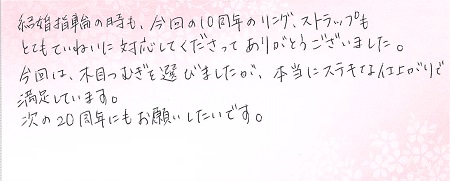 結婚指輪の時も、今回の10周年のリング、ストラップも
とてもていねいに対応してくださってありがとうございました。
今回は、木目つむぎを選びましたが、本当にステキな仕上がりで
満足しています。
次の20周年にもお願いしたいです。